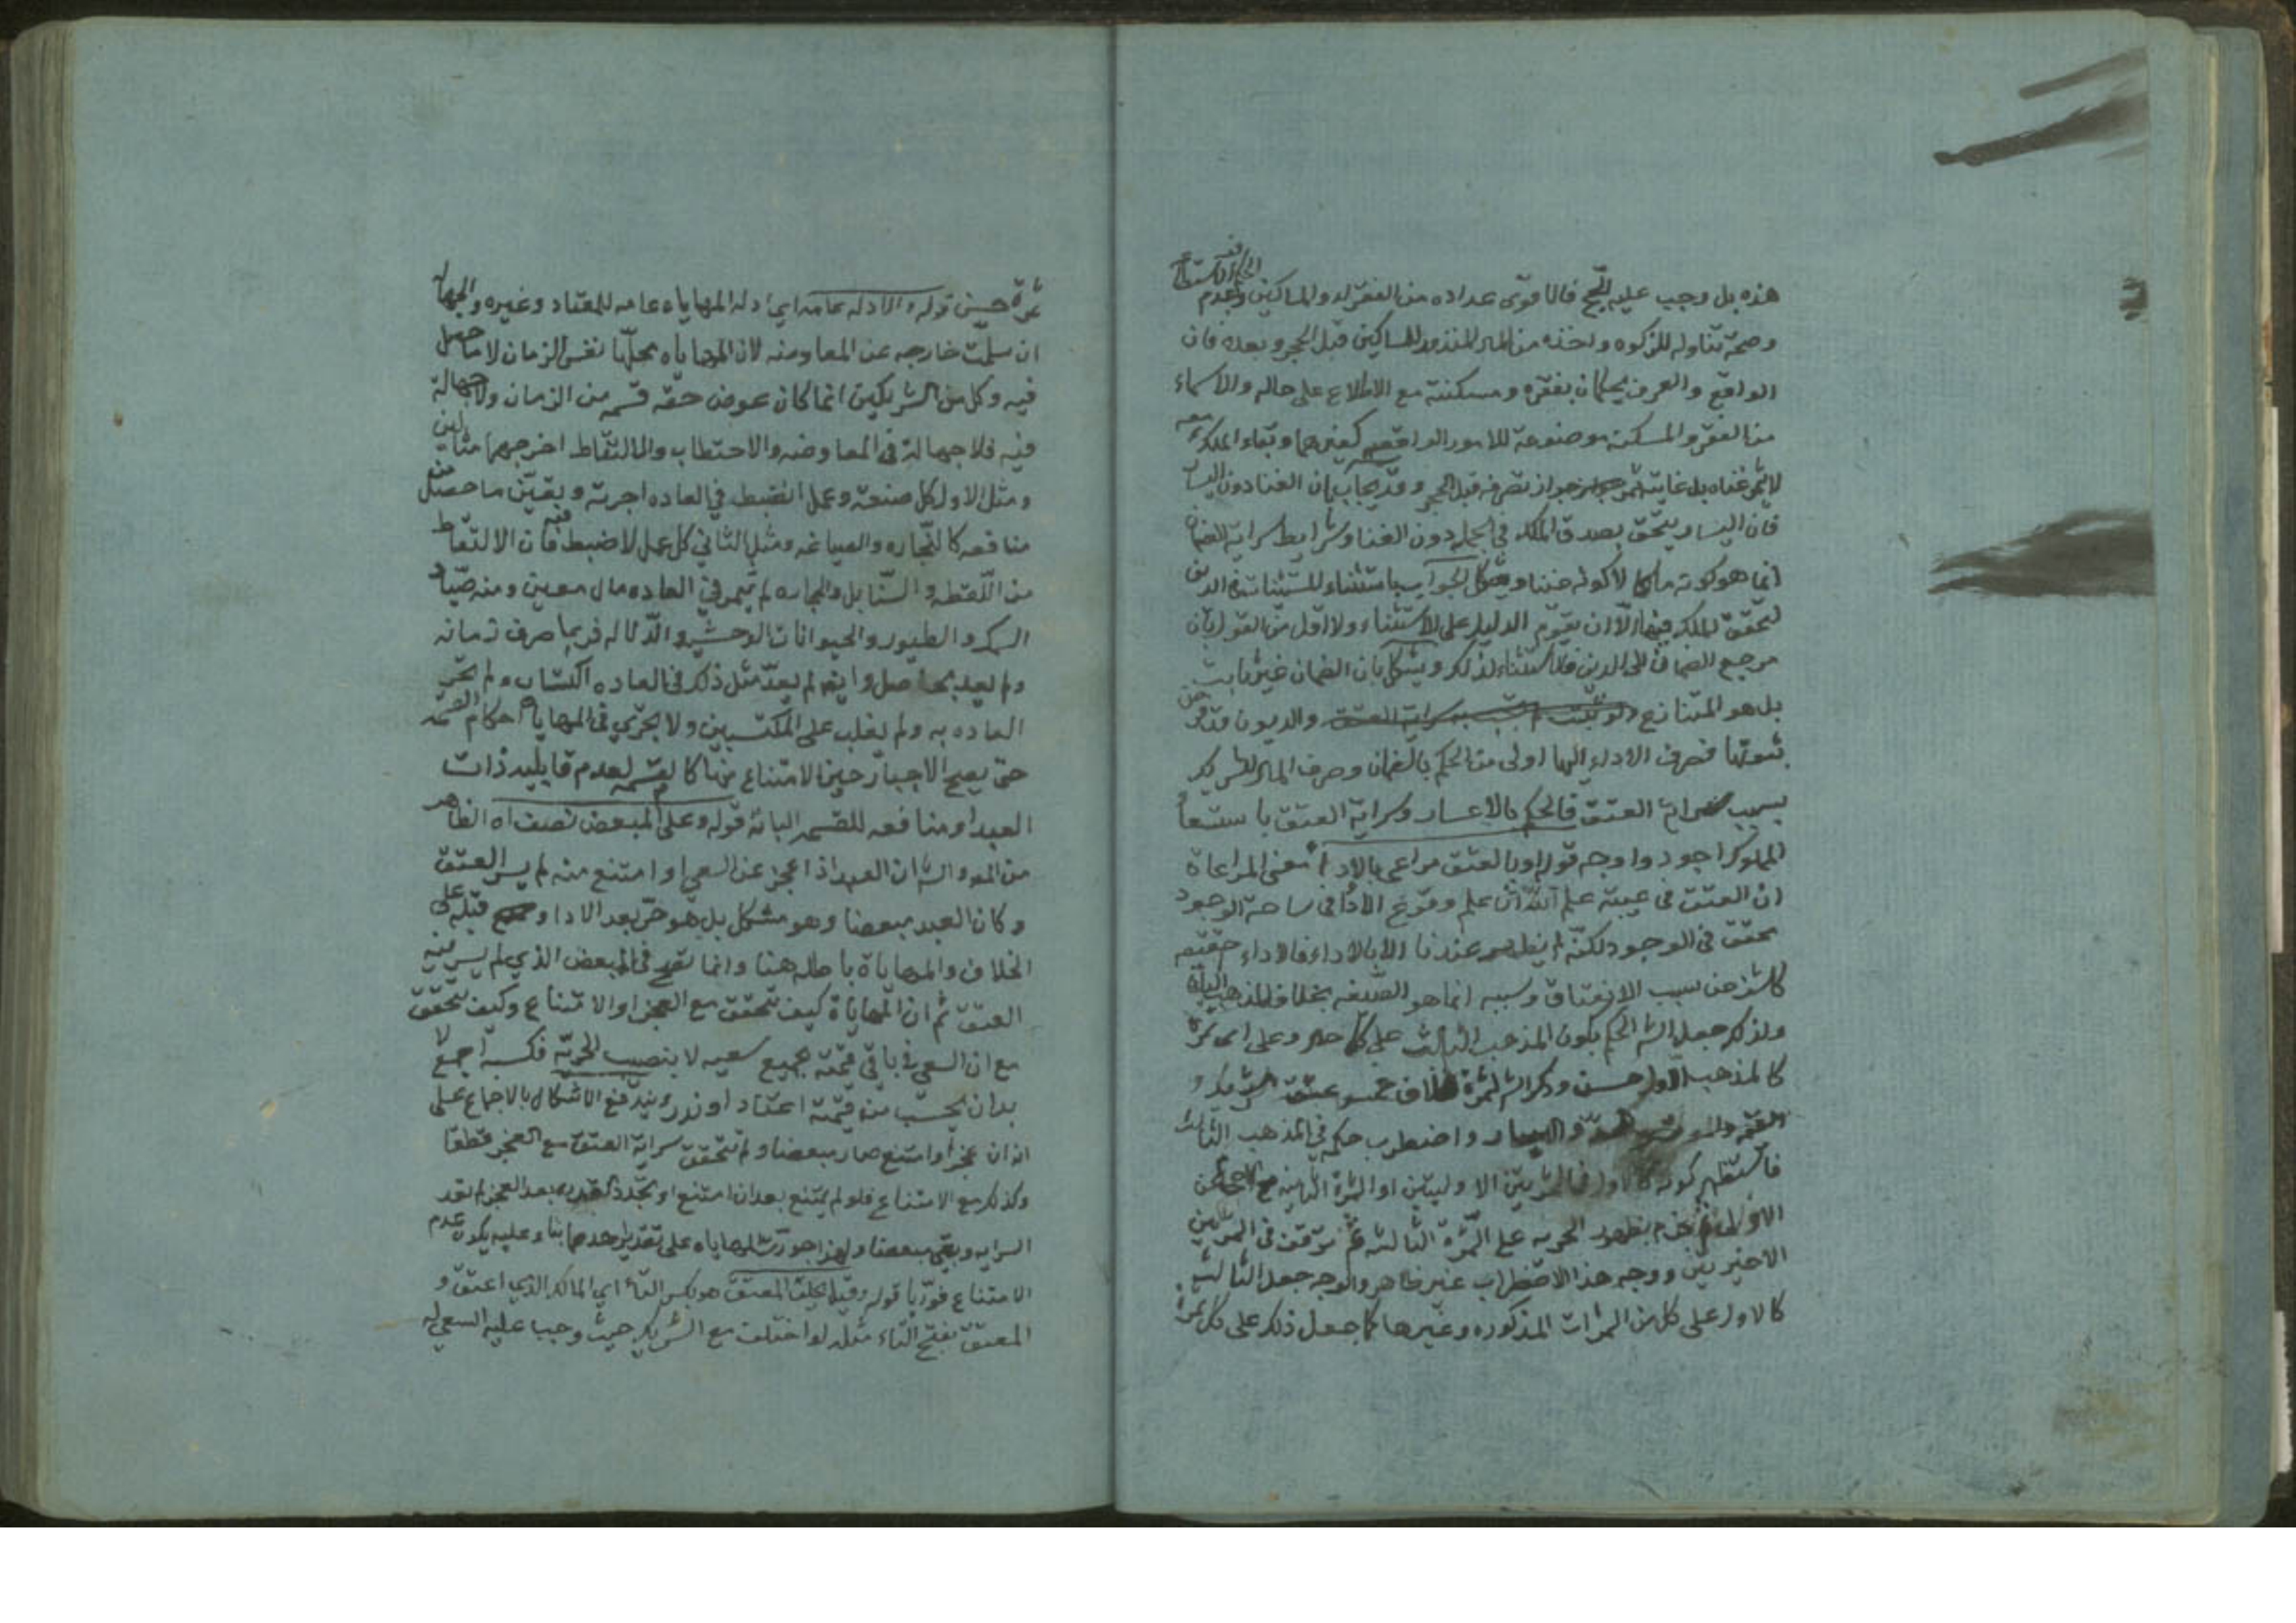 هذه بل وجب عليه الحج قالا قوى عداده من الفقراء والمساكين وعدم
وصحة تناوله للزكوة واخذه من المال المنذور للمساكين قبل الحجر وبعده فان
الواقع والعرف يحكمان بفقره ومسكنته مع الاطلاع على حاله والاسماء
من الفقر والمسكنه موضوعة للامور الواقعيه كغيرهما وبقاء الملك معه
لا يثمر غناه بل غايته جواز تصرفه قبل الحجر وقد يجاب بان الغنا دون اليسار
فان اليسار يتحقق بصدق الملك في الجمله دون الغنا وشرايط سراية العتق
انما هو كونه مالكا لا كونه غنيا ويشكل الجواب باستثناء المستثنيات في الدين
لتحقق الملك فيها الا ان يقوم الدليل على الاستثناء ولا اقل من القول بان
مرجع الضمان الى الدين فلا استثناء لذلك ويشكل بان الضمان غير ثابت
بل هو المتنازع والديون قد فرض
ثبوتها فصرف الادلة اليها اولى من الحكم بالضمان وصرف المال للشريك
بسبب سراية العتق فالحكم بالاعسار وسراية العتق باستسعا
المملوك اجود واوجه قوله وبالعتق مراعى بالاداء معنى المراعاة
ان العتق في عيبة علم الله ان علم وقوع الاداء في ساحة الوجود
تحقق في الوجود لكنه لم يظهر عندنا الا بالاداء فالاداء
كاشف عن سبب الانعتاق وسببه انما هو الصيغه بخلاف المذهب
ولذلك جعل الش الحكم بكون المذهب الثالث على كل حال وعلى اى ثمرة
كالمذهب الاول حسن وذكر الش لثمرة الخلاف خمسه عتق الشريك و
واليسار واضطرب حكمه في المذهب الثالث
فاستظهر كونه كالاول في الثمرتين الاوليتين او الثمرة الثانيه
الاولى ثم جزم بظهور الحريه على الثمرة الثالثه ثم توقف في الثمرتين
الاخيرتين ووجه هذا الاضطراب غير ظاهر والوجه جعل الثالث
كالاول على كل من الثمرات المذكوره وغيرها كما جعل ذلك على كل ثمرة
ثمرة حسن قوله والادله عامه اي ادلة المهاياه عامه للمعتاد وغيره والجهالة
ان سلمت خارجه عن المعاوضه لان المهاياه محلها نفس الزمان لا ما حصل
فيه وكل من الشريكين انما كان عوض حقه قسمه من الزمان ولا جهالة
فيه فلا جهالة في المعاوضه والاحتطاب والالتقاط اخرجهما مثالين
ومثل الاول كل صنعة وعمل انضبط في العاده اجرته وبقين ما حصل من
منافعه كالتجاره والصياغه ومثل الثاني كل عمل لا ضبط فيه فان الالتقاط
من اللقطه والسنابل والحجاره لم يثمر في العاده مال معين ومنه صياد
السمك والطيور والحيوانات الوحشيه والدلاله فربما صرف زمانه
ولم يعد بحاصل وايضا لم يعد مثل ذلك في العاده اكتسابا ولم تجر
العاده به ولم يغلب على المكتسبين ولا يجري في المهاياة احكام القسمة
حتى يصح الاجبار حين الامتناع منها كالقسمه لعدم قابليه ذات
العبد او منافعه للقسمه البانه قوله وعلى المبعض نصف اه الظاهر
من المص والش ان العبد اذا عجز عن السعي او امتنع منه لم يسر العتق
وكان العبد مبعضا وهو مشكل بل هو حر بعد الادا او قبله على
الخلاف والمهاياة باطله هنا وانما تقع في المبعض الذي لم يسر فيه
العتق ثم ان المهاياة كيف تتحقق مع العجز او الامتناع وكيف تتحقق
مع ان السعي في باقي قيمته بجميع سعيه لا بنصيب الحريه فكسبه اجمع لا
بد ان يحتسب من قيمته اعتاد او ندر ويندفع الاشكال بالاجماع على
انه ان عجز او امتنع صار مبعضا ولم تتحقق سراية العتق مع العجز قطعا
وكذلك مع الامتناع فلو لم يمتنع بعد ان امتنع او تجدد القدره بعد العجز لم تعد
السرايه وبقي مبعضا ولهذا جوز الش المهاياه على تقدير احدهما بناء عليه يكون عدم
الامتناع فوريا قوله وقيل يحلف المعتق هو بكسر التاء اي المالك الذي اعتق و
المعتق بفتح التاء مثله لو اختلف مع الشريك حيث وجب عليه السعي له